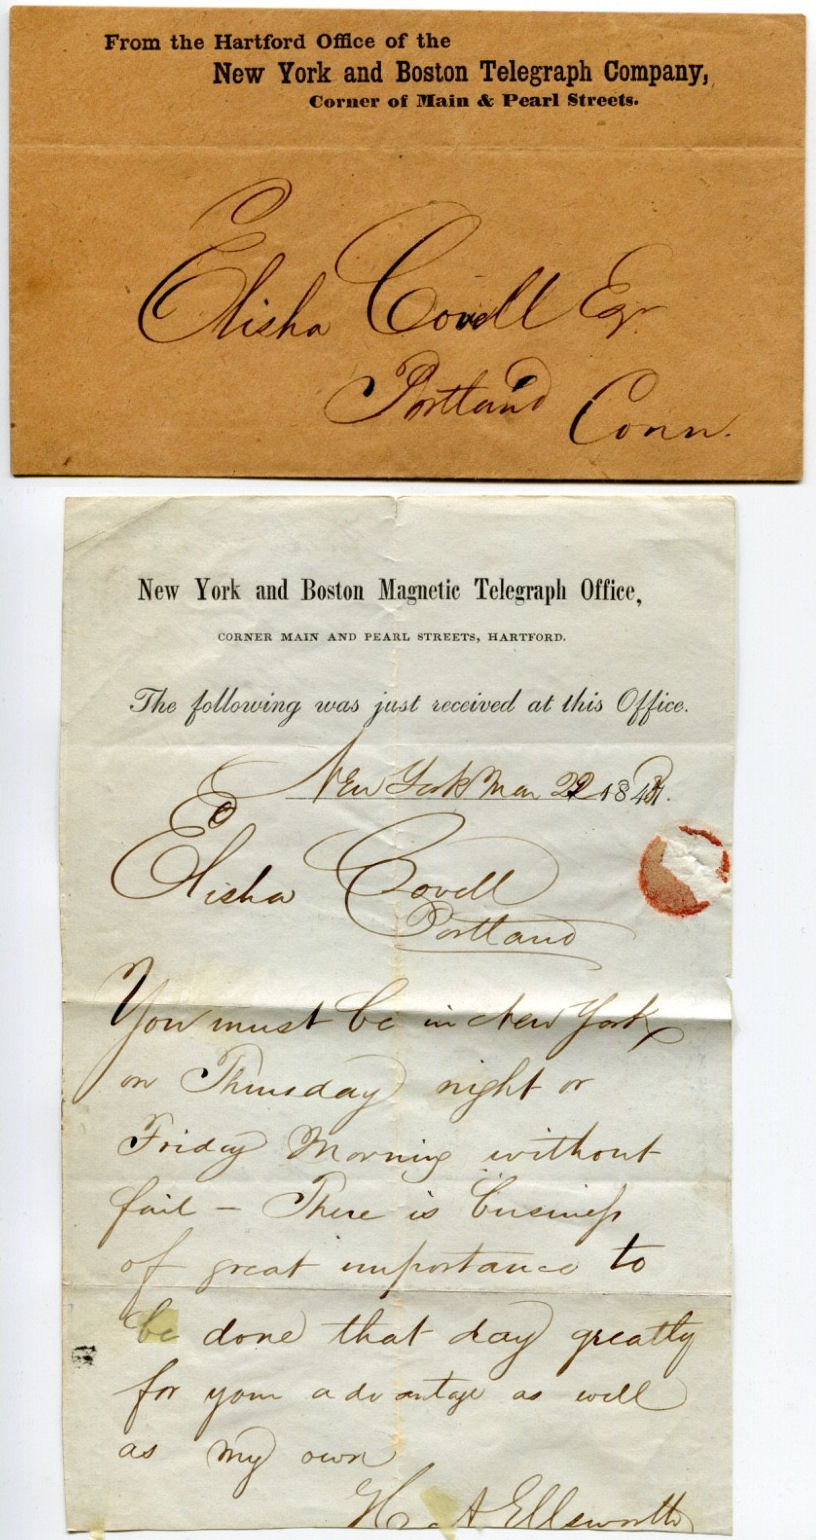 From the Hartford Office of the
New York and Boston Telegraph Company,
Corner of Main & Pearl Streets.
Elisha Covell Esqr
Portland Conn.
New York and Boston Magnetic Telegraph Office,
CORNER MAIN AND PEARL STREETS, HARTFORD.
The following was just received at this Office.
New York Mar 22 184
Elisha Covell
Portland
You must be in New York
on Thursday night or
Friday Morning without
fail – There is business
of great importance to
be done that day greatly
for your advantage as well
as my own
H A Ellsworth